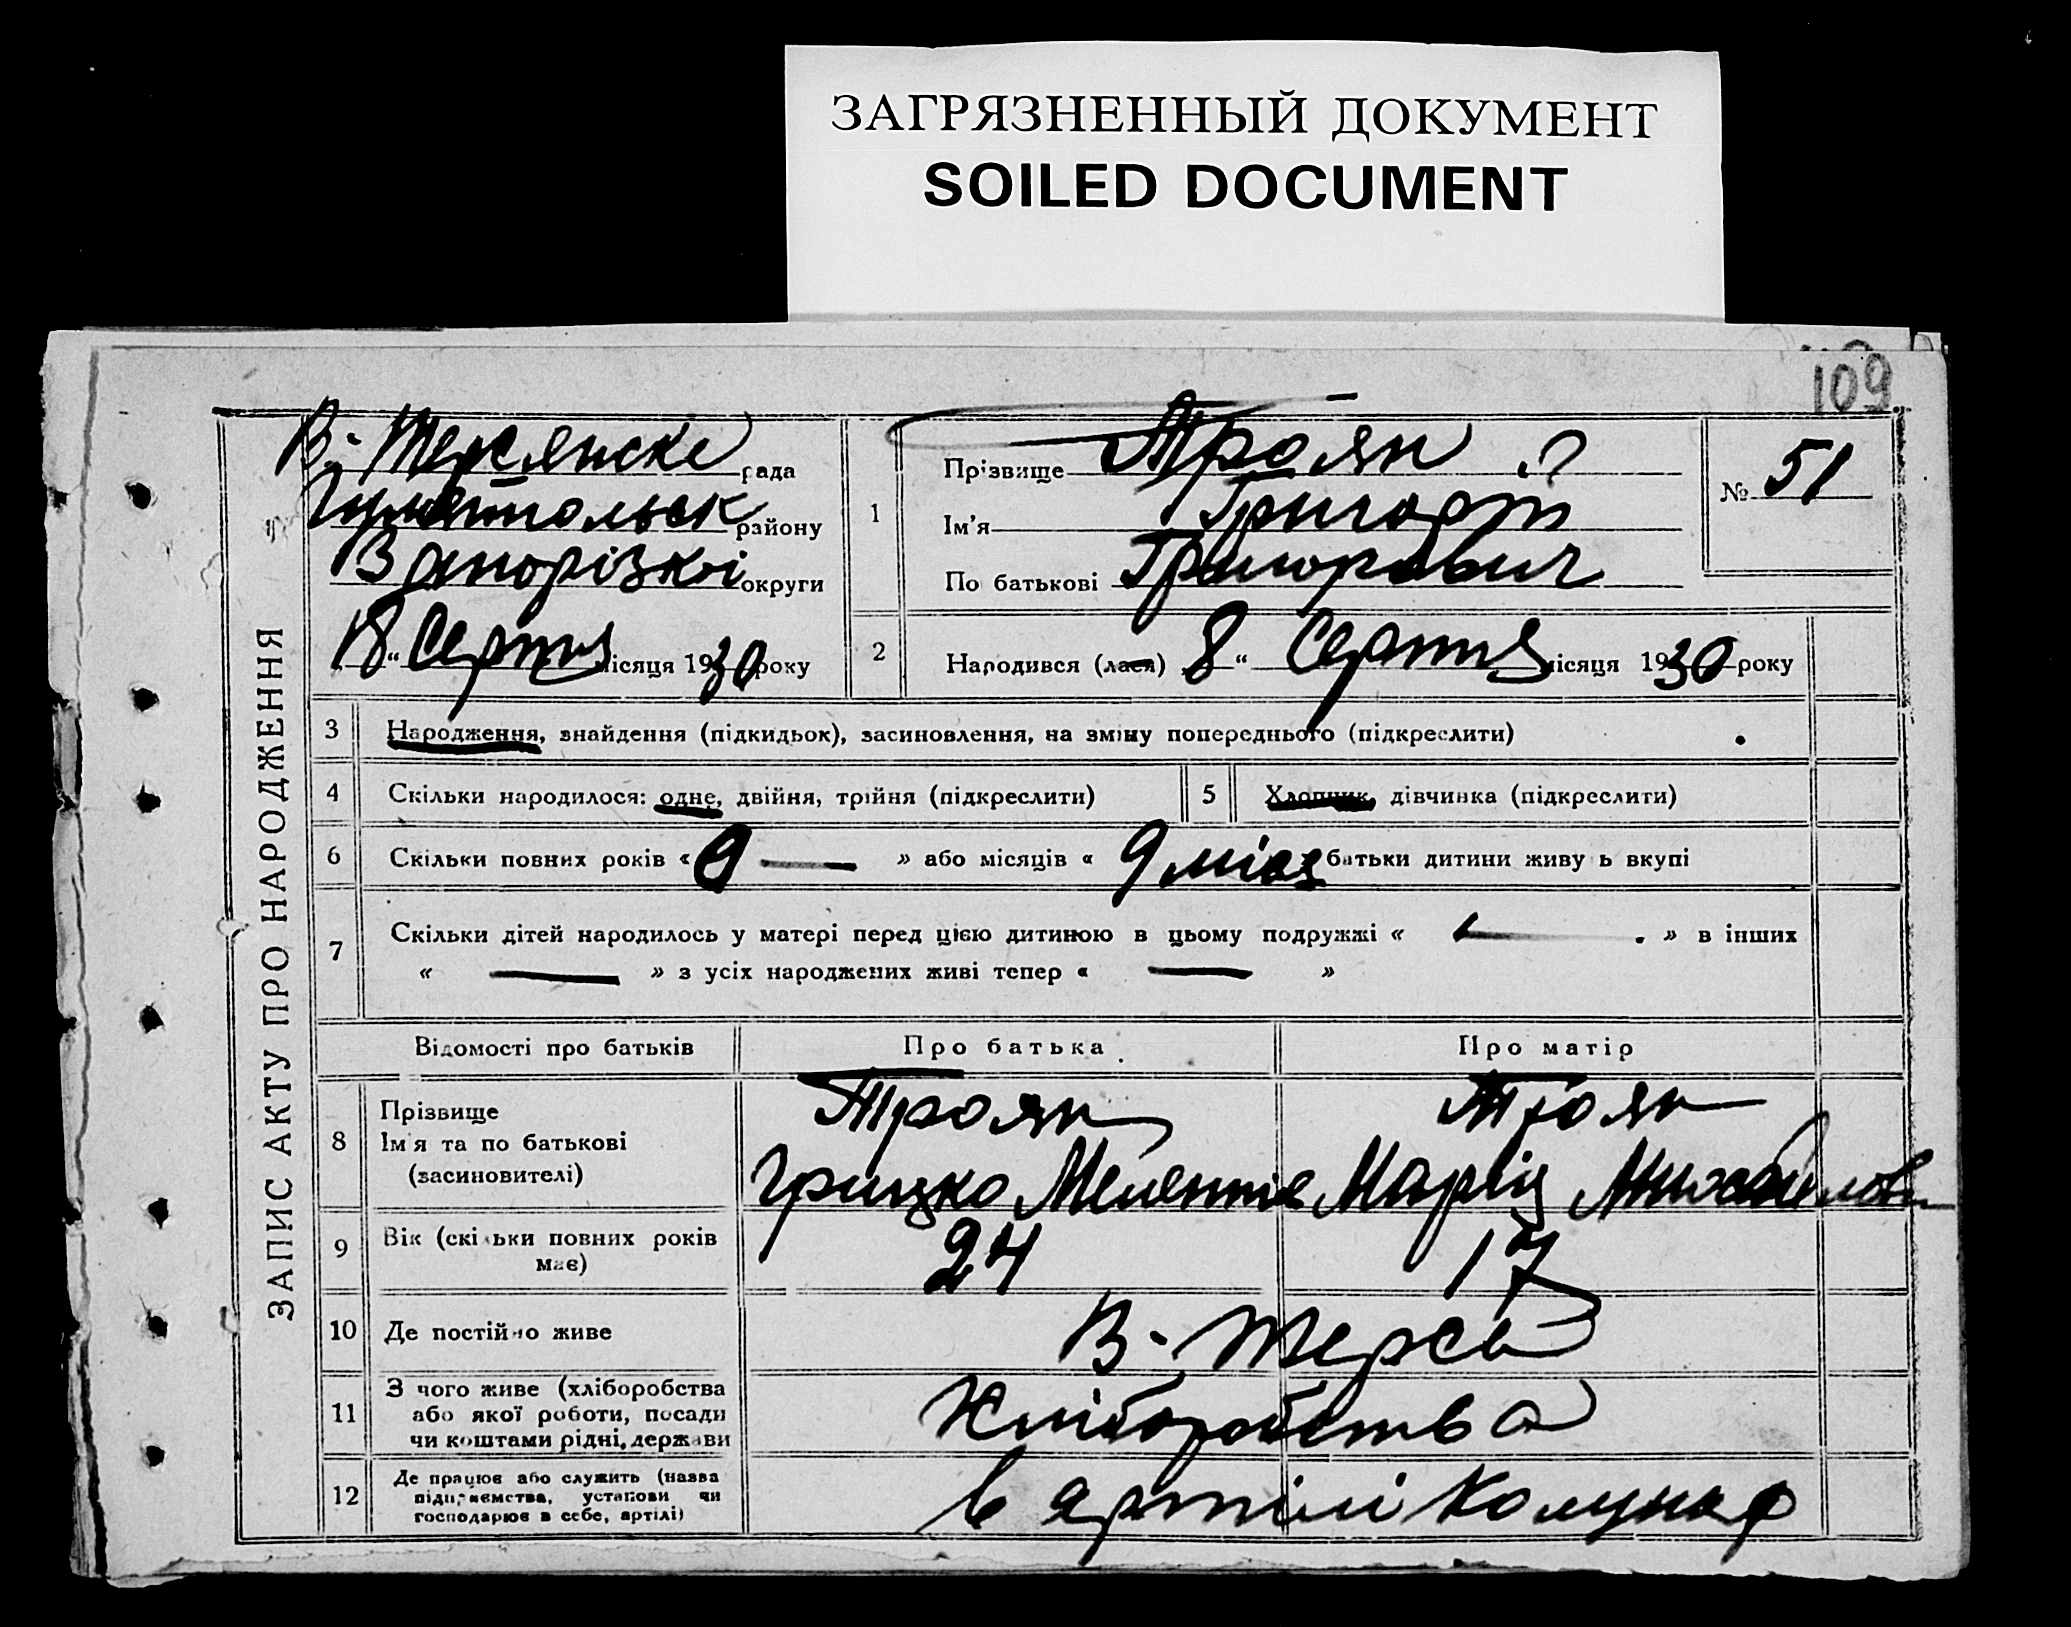 ЗАГРЯЗНЕННЫЙ ДОКУМЕНТ
SOILED DOCUMENT
109
ЗАПИС АКТУ ПРО НАРОДЖЕННЯ
В-Терсянське рада
району
Запорізкої округи
18 " Серпня місяця 1930 року
1
Прізвище Троян
Ім'я Григорій
По батькові Григорович
№ 51
2
Народився (лася) 8 " Серпня місяця 1930 року
3 Народження, знайдення (підкидьок), засиновлення, на зміну попереднього (підкреслити)
4 Скільки народилося: одне, двійня, трійня (підкреслити)
5 Хлопчик, дівчинка (підкреслити)
6 Скільки повних років « — » або місяців « 9 міся батьки дитини живуть вкупі
7 Скільки дітей народилось у матері перед цією дитиною в цьому подружжі « — » в інших
« — » з усіх народжених живі тепер « — »
Відомості про батьків Про батька Про матір
8 Прізвище
Ім'я та по батькові
(засиновителі)
Троян
Грицко Мелентіє
Троян
Марія Михайлови
9 Вік (скільки повних років
має)
24 17
10 Де постійно живе В-Терса
11 З чого живе (хліборобства
або якої роботи, посади
чи коштами рідні, держави
Хліборобства
12 Де працює або служить (назва
підприємства, установи чи
господарює в себе, артілі)
в артілі Комунар